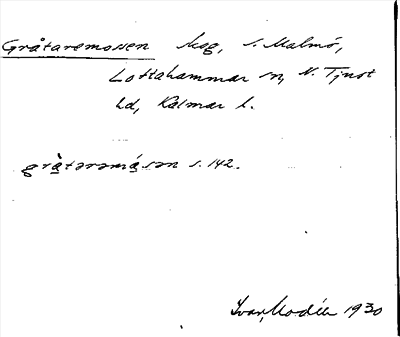 Gråtaremossen Mosg, S. Malmö,
Lottahammar sn, N. Tjust
hd, Kalmar l.
gràtaramásan s. 142.
Ivar Modéer 1930